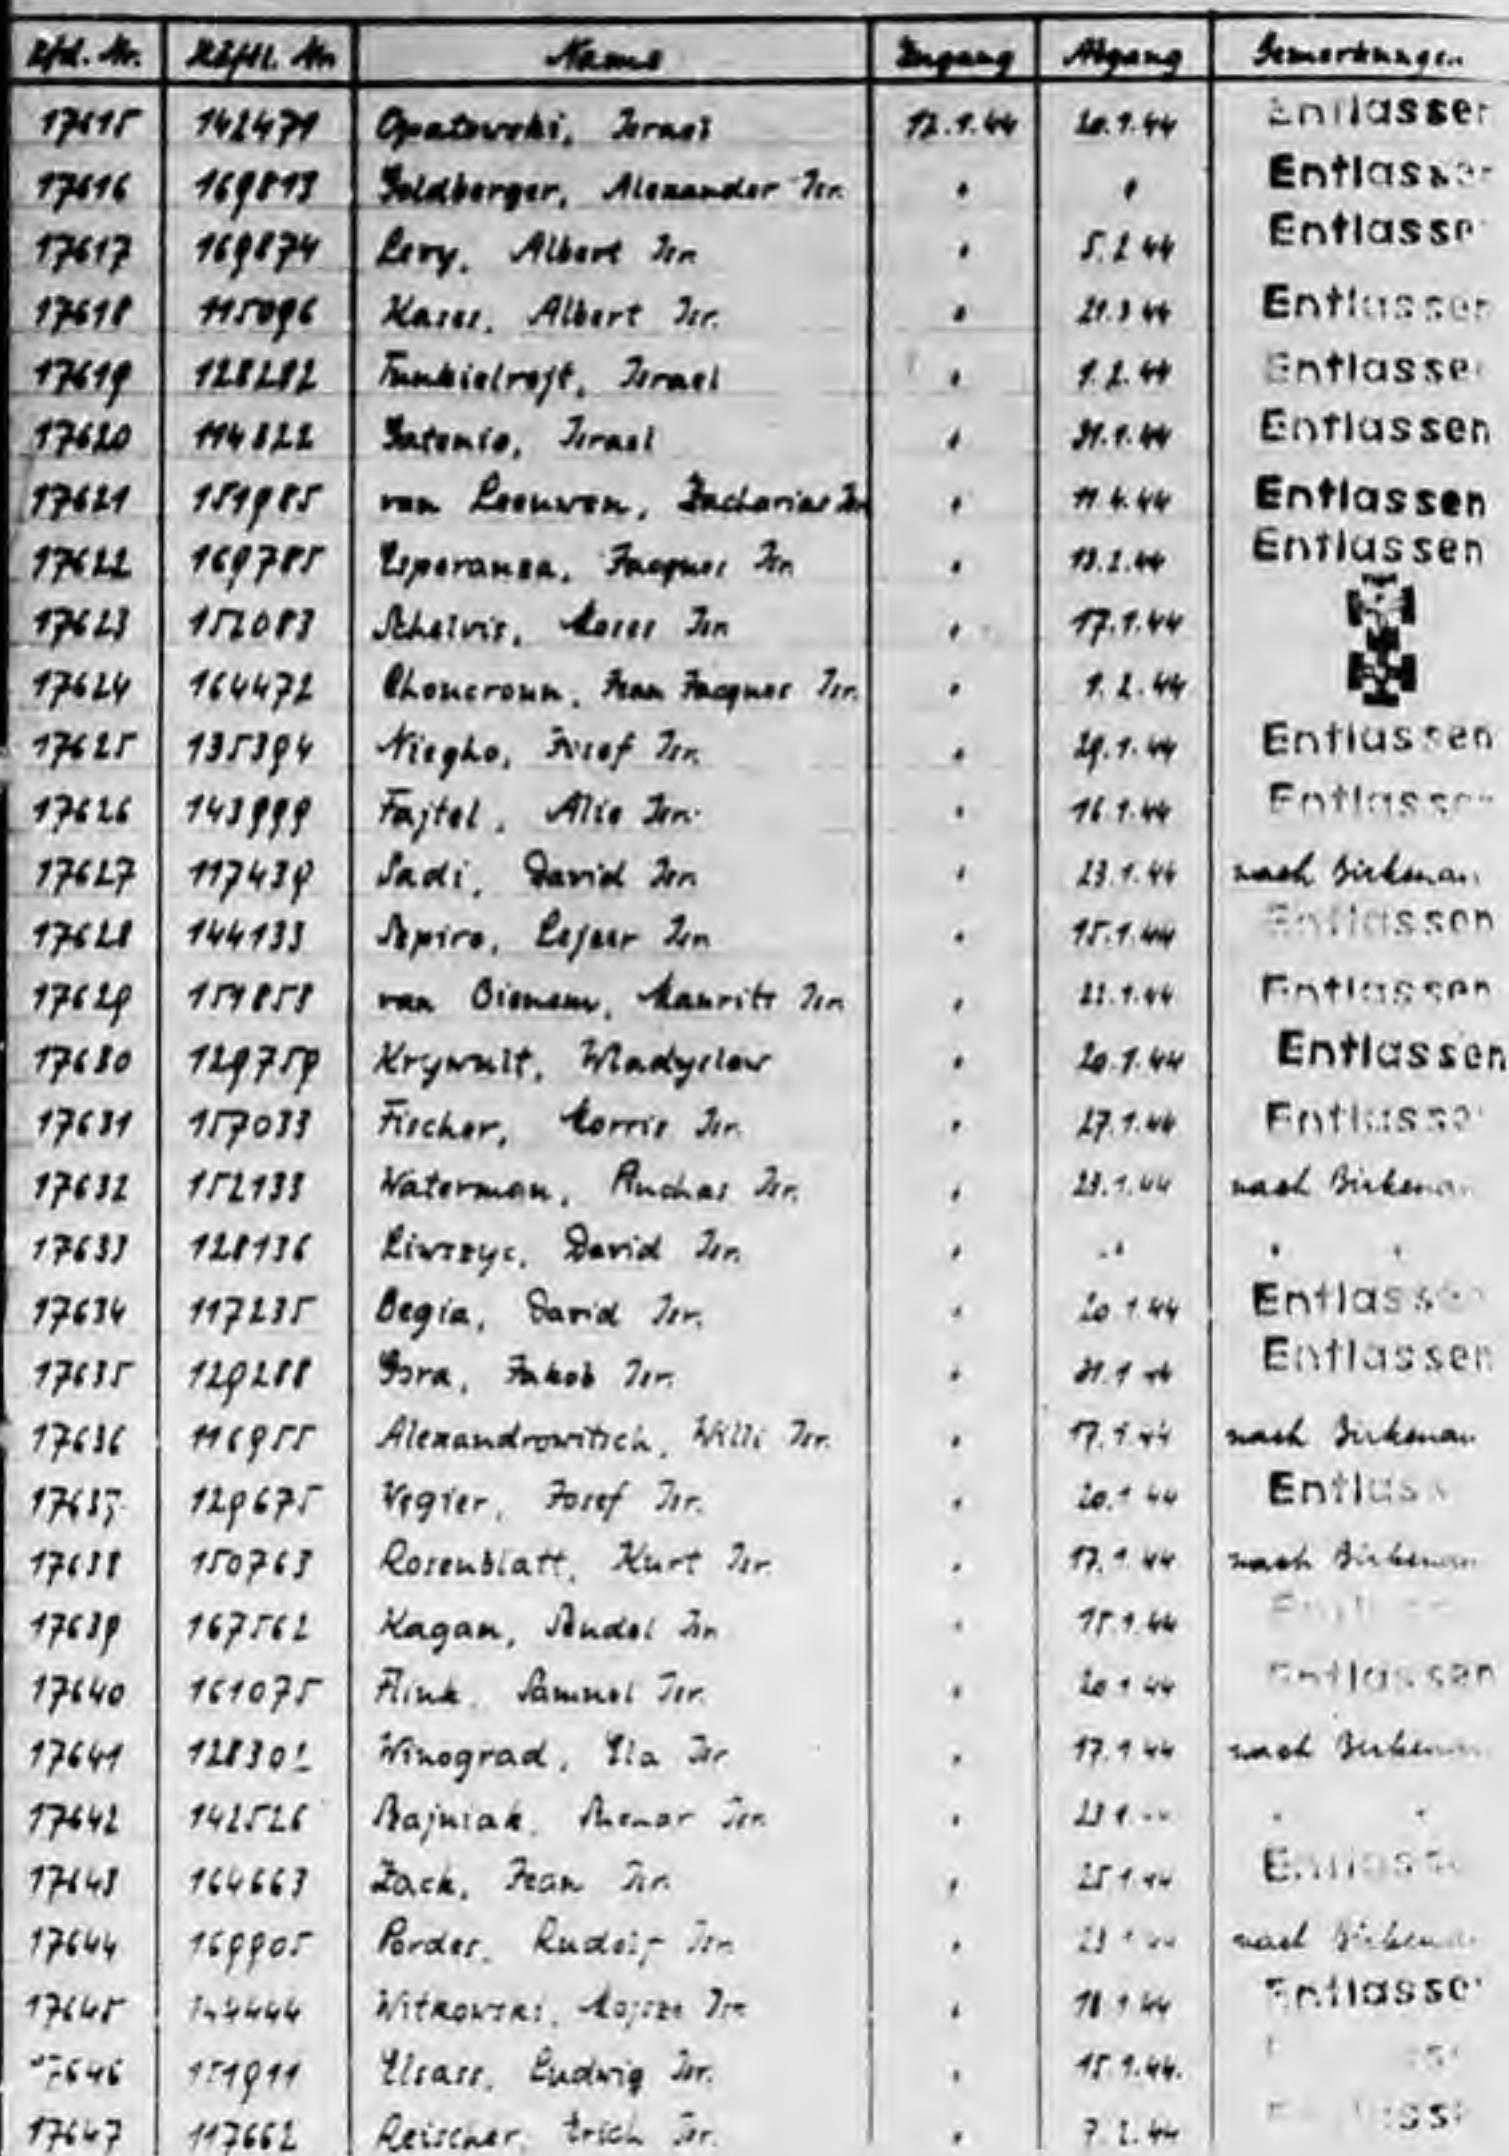 Lfd. Nr. Häftl. Nr. Name Zugang Abgang Bemerkungen
17615 142471 Opatowski, Israel 12.1.44 20.1.44 Entlassen
17616 169813 Goldberger, Alexander Isr. " " Entlassen
17617 169874 Levy, Albert Isr. " 5.2.44 Entlassen
17618 115096 Kases, Albert Isr. " 21.3.44 Entlassen
17619 128282 Funkielrejt, Israel " 1.2.44 Entlassen
17620 114822 Gatenio, Israel " 31.1.44 Entlassen
17621 151985 van Leeuwen, Zacharias Isr " 11.4.44 Entlassen
17622 169785 Esperanza, Jacques Isr. " 13.2.44 Entlassen
17623 152083 Schelvis, Moses Isr. " 17.1.44
17624 164472 Choucroun, Jean Jacques Isr. " 1.2.44
17625 135394 Niegho, Josef Isr. " 29.1.44 Entlassen
17626 143999 Fajtel, Alie Isr. " 16.1.44 Entlassen
17627 117439 Sadi, David Isr. " 23.1.44 nach Birkenau
17628 144133 Szpiro, Lejzer Isr. " 15.1.44 Entlassen
17629 151858 van Bienem, Maurits Isr. " 22.1.44 Entlassen
17630 129759 Krywult, Wladyslaw " 20.1.44 Entlassen
17631 157033 Fischer, Morris Isr. " 27.1.44 Entlassen
17632 152133 Waterman, Pinchas Isr. " 23.1.44 nach Birkenau
17633 128136 Liwszyc, David Isr. " " " "
17634 117235 Begia, David Isr. " 20.1.44 Entlassen
17635 129288 Gora, Jakob Isr. " 31.1.44 Entlassen
17636 116955 Alexandrowitsch, Willi Isr. " 17.1.44 nach Birkenau
17637 129675 Wegier, Josef Isr. " 20.1.44 Entlassen
17638 150763 Rosenblatt, Kurt Isr. " 17.1.44 nach Birkenau
17639 167562 Kagan, Sendel Isr. " 15.1.44
17640 161075 Flink, Samuel Isr. " 20.1.44 Entlassen
17641 128302 Winograd, Ela Isr " 17.1.44 nach Birkenau
17642 142526 Bajniak, Isr. " 23.1. " "
17643 164663 Zack, Jean Isr. " 25.1.44 Entlassen
17644 169905 Pordes, Rudolf Isr. " 23.1.44 nach Birkenau
17645 144444 Witkowski, Mojsze Isr " 18.1.44 Entlassen
17646 151911 Elsass, Ludwig Isr. " 15.1.44.
17647 117662 Reischer, Erich Isr. " 7.2.44